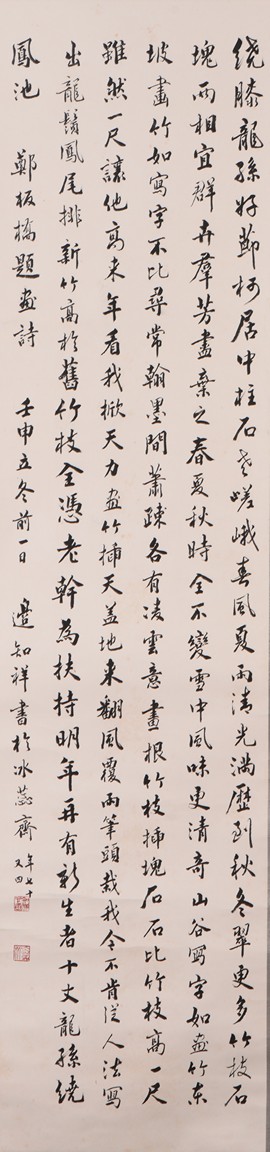 繞膝龍孫好節柯居中柱石老嵯峨春風夏雨清光滿歷到秋冬翠更多竹枝石
塊兩相宜群卉羣芳盡棄之春夏秋時全不變雪中風味更清奇山谷寫字如畫竹東
坡畫竹如寫字不比尋常翰墨間蕭疎各有凌雲意畫根竹枝插塊石石比竹枝高一尺
雖然一尺讓他高來年看我掀天力畫竹插天蓋地來翻風覆雨筆頭栽我今不肯從人法寫
出龍鬚鳳尾排新竹高於舊竹枝全憑老幹為扶持明年再有新生者十丈龍孫繞
鳳池 鄭板橋題畫詩 壬申立冬前一日 邊知祥書於冰蕊齋 年七十又四